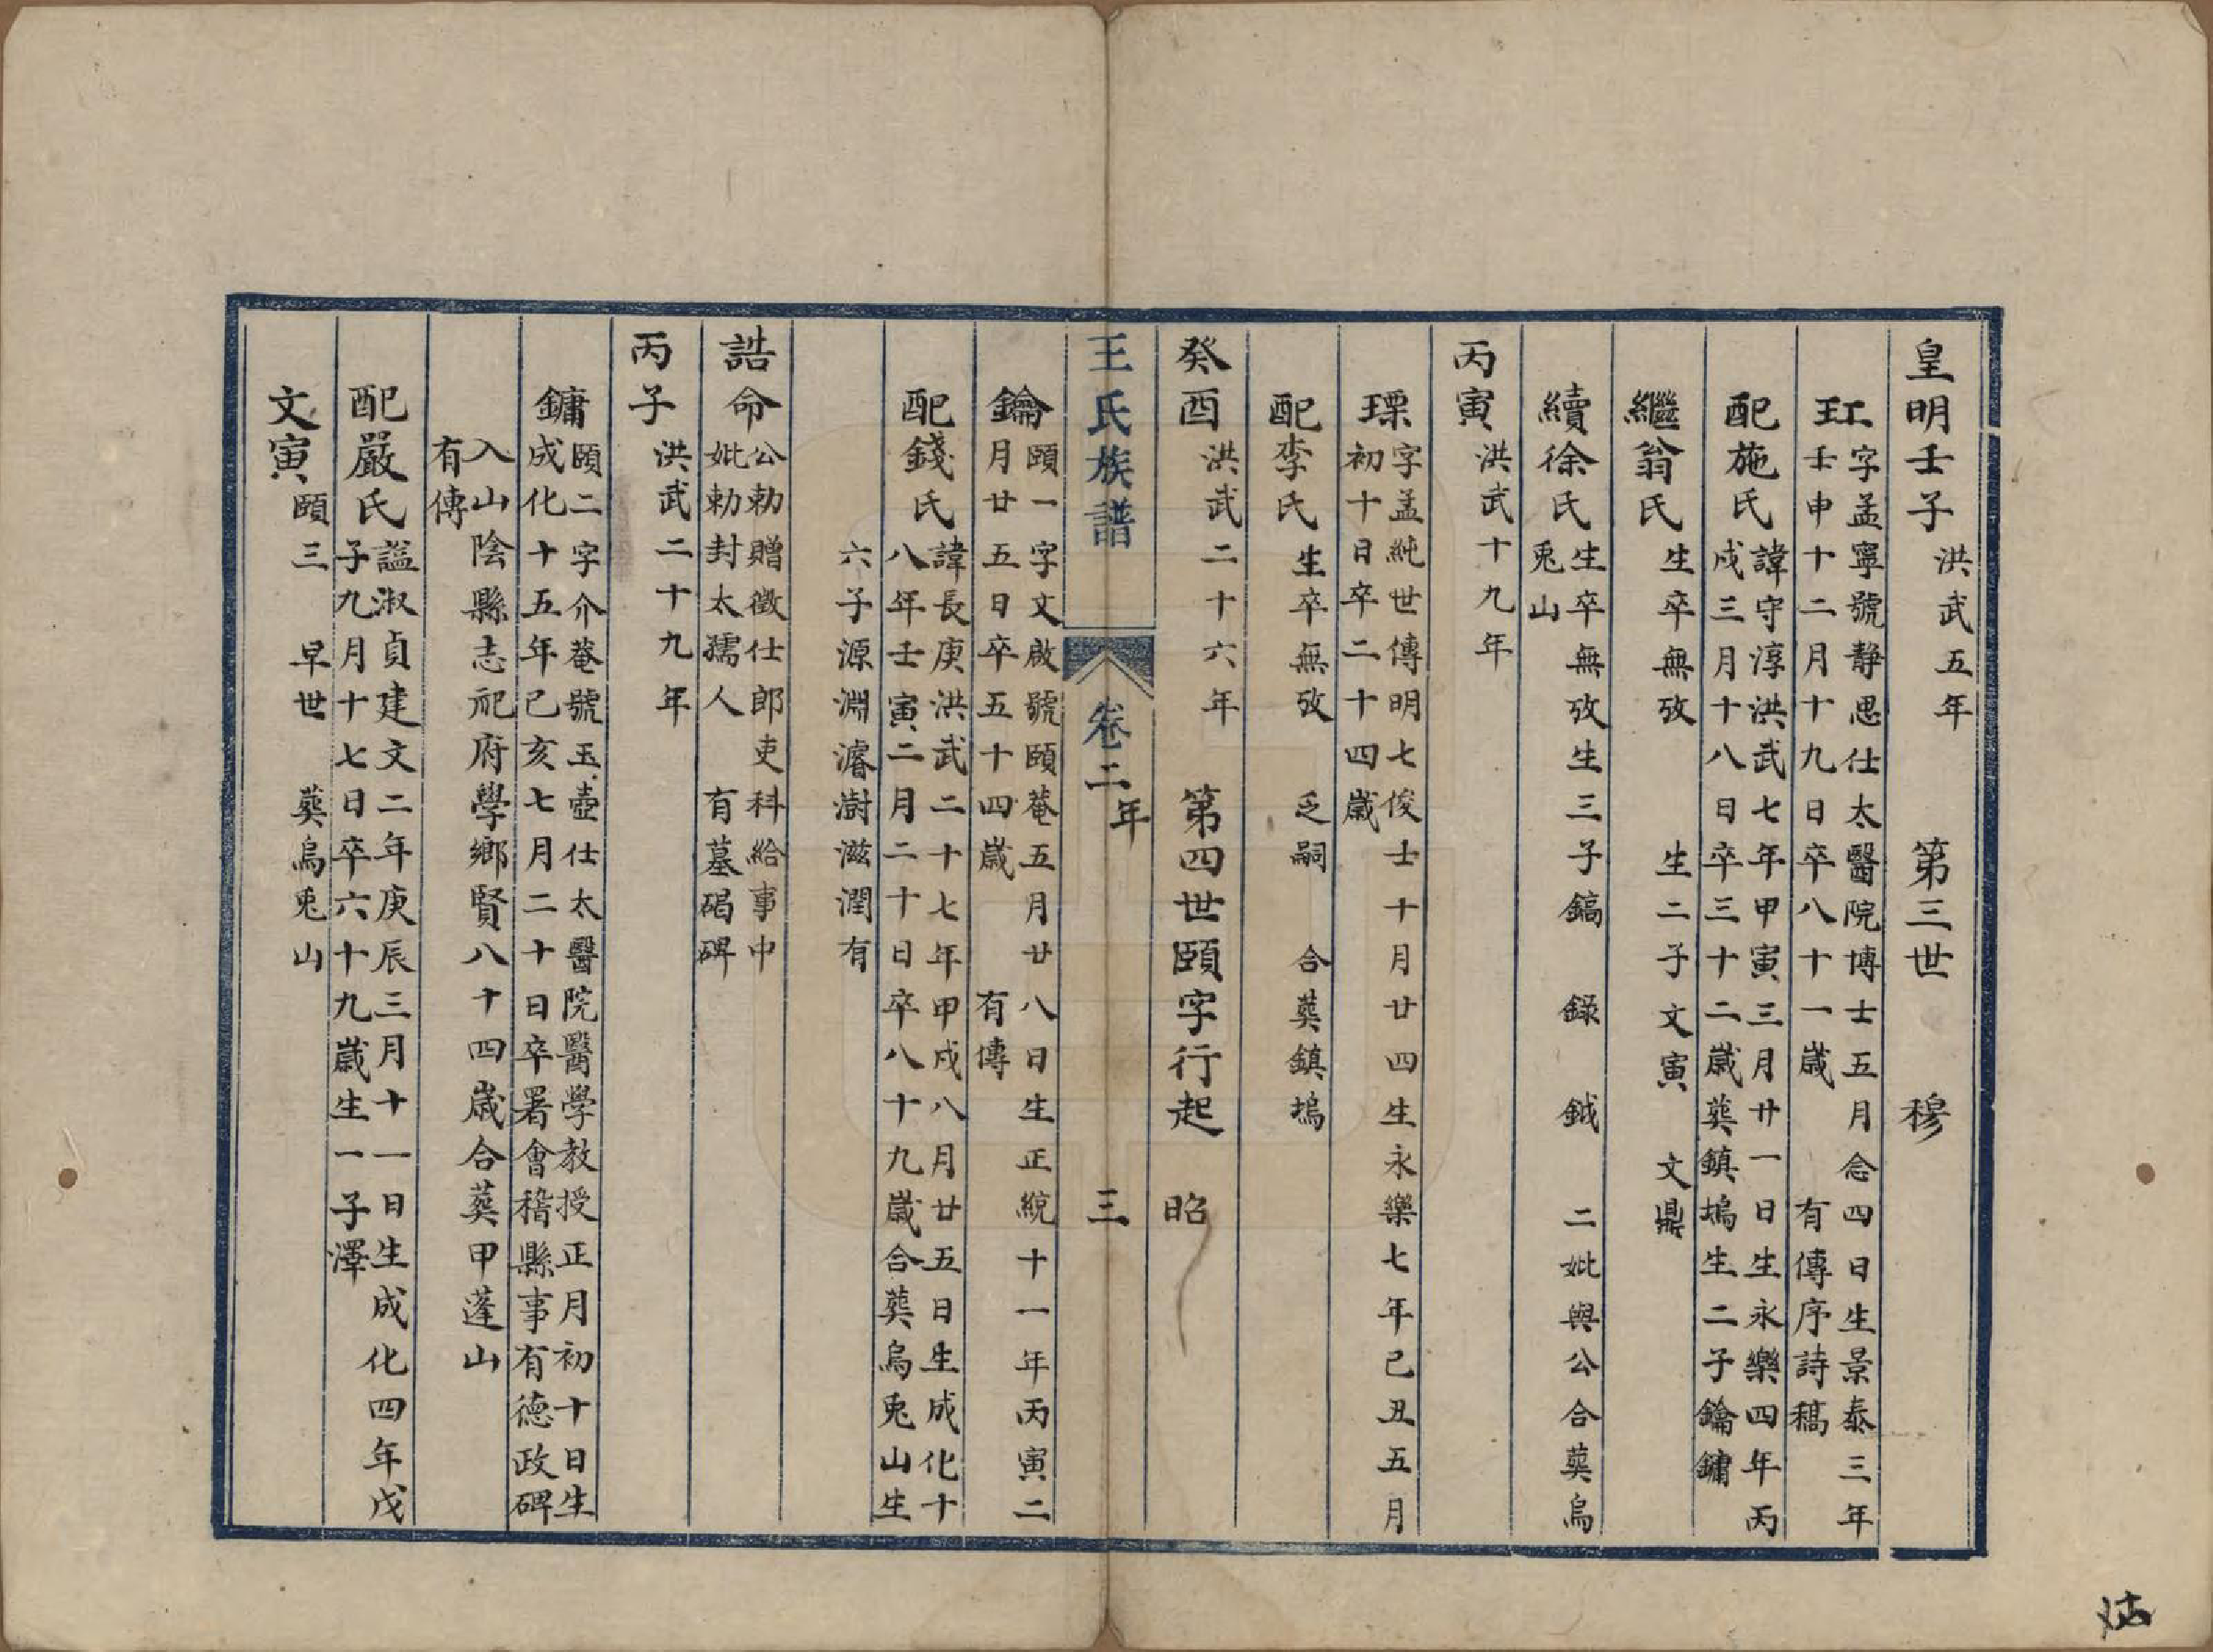 皇明壬子 洪武五年 第三世 穆
玒 字孟寧號靜思仕太醫院博士五月念四日生景泰三年
壬申十二月十九日卒八十一歲 有傳序詩稿
配施氏 諱守淳洪武七年甲寅三月廿一日生永樂四年丙
戌三月十八日卒三十二歲葬鎮塢生二子鑰鏞
繼翁氏 生卒無攷 生二子文寅 文鼎
續徐氏 生卒無攷生三子鎬 錄 鉞 二妣與公合葬烏
兎山
丙寅 洪武十九年
瑮 字孟純世傳明七俊士十月廿四生永樂七年己丑五月
初十日卒二十四歲
配李氏 生卒無攷 乏嗣 合葬鎮塢
癸酉 洪武二十六年 第四世頤字行起 昭
王氏族譜 卷二 年 三
鑰 頤一字文啟號頤菴五月廿八日生正統十一年丙寅二
月廿五日卒五十四歲 有傳
配錢氏 諱長庚洪武二十七年甲戌八月廿五日生成化十
八年壬寅二月二十日卒八十九歲合葬烏兎山生
六子源淵濬澍滋潤有
誥命 公勅贈徵仕郎吏科給事中
妣勅封太孺人 有墓碣碑
丙子 洪武二十九年
鏞 頤二字介菴號玉壺仕太醫院醫學教授正月初十日生
成化十五年己亥七月二十日卒署會稽縣事有德政碑
入山陰縣志祀府學鄉賢八十四歲合葬甲蓬山
有傳
配嚴氏 諡淑貞建文二年庚辰三月十一日生成化四年戊
子九月十七日卒六十九歲生一子澤
文寅 頤三 早世 葬烏兎山